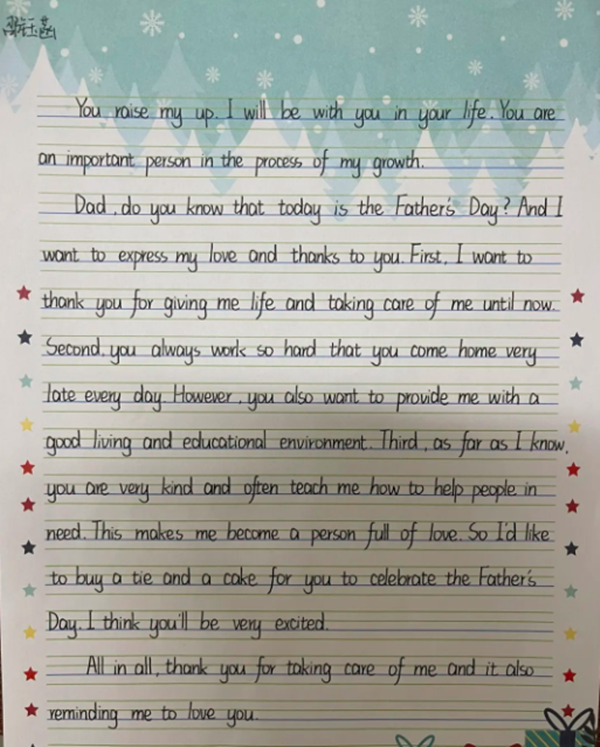 You raise my up. I will be with you in your life. You are
an important person in the process of my growth.
Dad, do you know that today is the Father's Day? And I
want to express my love and thanks to you. First, I want to
thank you for giving me life and taking care of me until now.
Second, you always work so hard that you come home very
late every day. However, you also want to provide me with a
good living and educational environment. Third, as far as I know,
you are very kind and often teach me how to help people in
need. This makes me become a person full of love. So I'd like
to buy a tie and a cake for you to celebrate the Father's
Day. I think you'll be very excited.
All in all, thank you for taking care of me and it also
reminding me to love you.